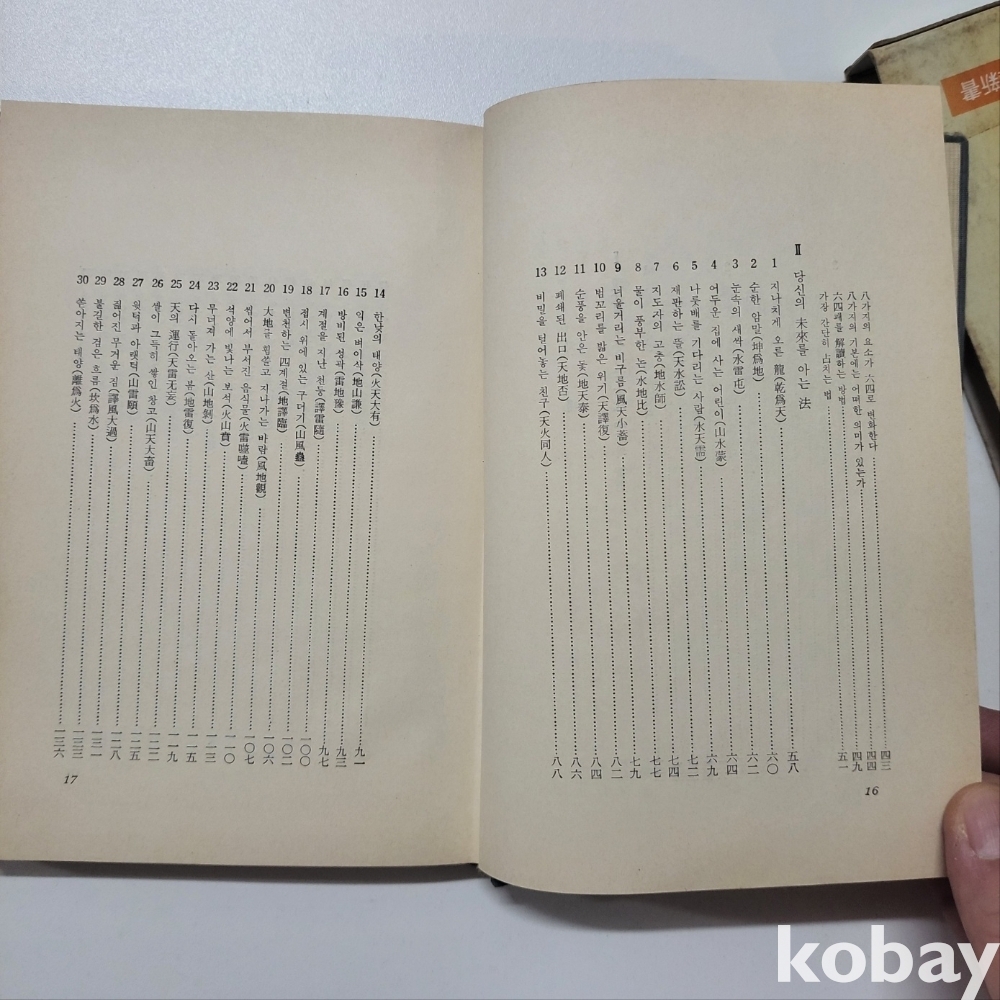 八가지의 요소가 六四로 변화한다 四三
八가지의 기본에는 어떠한 의미가 있는가 四四
六四괘를 解讀하는 방법 四九
가장 간단히 占치는 법 五一
Ⅱ 당신의 未來를 아는 法
1 지나치게 오른 龍(乾爲天) 五八
2 순한 암말(坤爲地) 六〇
3 눈속의 새싹(水雷屯) 六二
4 어두운 집에 사는 어린이(山水蒙) 六四
5 나룻배를 기다리는 사람(水天需) 六九
6 재판하는 뜰(天水訟) 七二
7 지도자의 고충(地水師) 七四
8 물이 풍부한 논(水地比) 七七
9 너울거리는 비구름(風天小畜) 七九
10 범꼬리를 밟은 위기(天譯復) 八二
11 순풍을 안은 돛(地天泰) 八四
12 폐쇄된 出口(天地否) 八六
13 비밀을 털어놓는 친구(天火同人) 八八
16
14 한낮의 태양(火天大有) 九一
15 익은 벼이삭(地山謙) 九三
16 방비된 성곽(雷地豫) 九七
17 계절을 지난 천둥(譯雷隨) 一〇〇
18 접시 위에 있는 구더기(山風蟲) 一〇二
19 변천하는 四계절(地譯臨) 一〇六
20 大地를 휩쓸고 지나가는 바람(風地觀) 一〇七
21 씹어서 부서진 음식물(火雷噬嗑) 一一〇
22 석양에 빛나는 보석(火山賁) 一一三
23 무너져 가는 산(山地剝) 一一五
24 다시 돌아오는 봄(地雷復) 一一九
25 天의 運行(天雷无妄) 一二二
26 쌀이 그득히 쌓인 창고(山天大畜) 一二五
27 윗턱과 아랫턱(山雷頤) 一二八
28 짊어진 무거운 짐(譯風大過) 一三一
29 불길한 검은 흐름(坎爲水) 一三三
30 쏟아지는 태양(離爲火) 一三六
17
新書
kobay